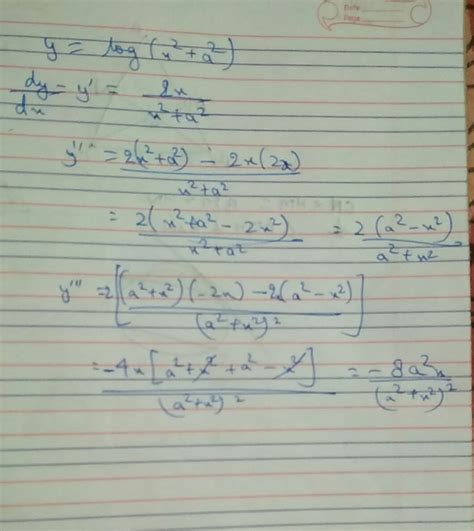 Date
Page
y = log (x² + a²)
dy/dx = y' = 2x / x² + a²
y'' = 2(x² + a²) - 2x(2x) / x² + a²
= 2(x² + a² - 2x²) / x² + a² = 2(a² - x²) / a² + x²
y''' = 2[(a² + x²)(-2x) - 2(a² - x²) / (a² + x²)²]
= -4x[a² + x² + a² - x²] / (a² + x²)² = -8a²x / (x² + x²)²